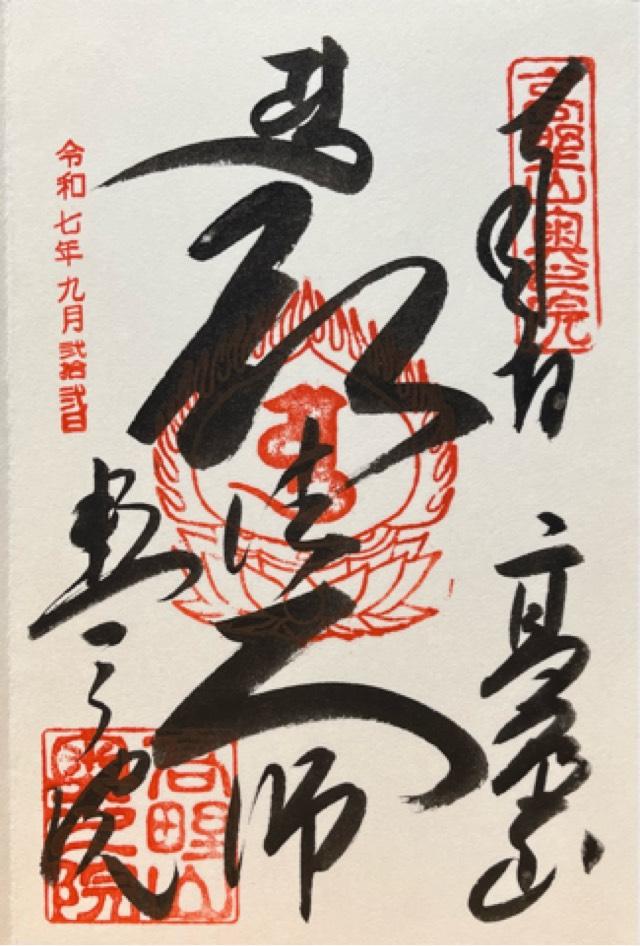 高野山奥之院
奉拝
高野山
弘法大師
奥之院
令和七年九月弐拾弐日
高野山
奥之院